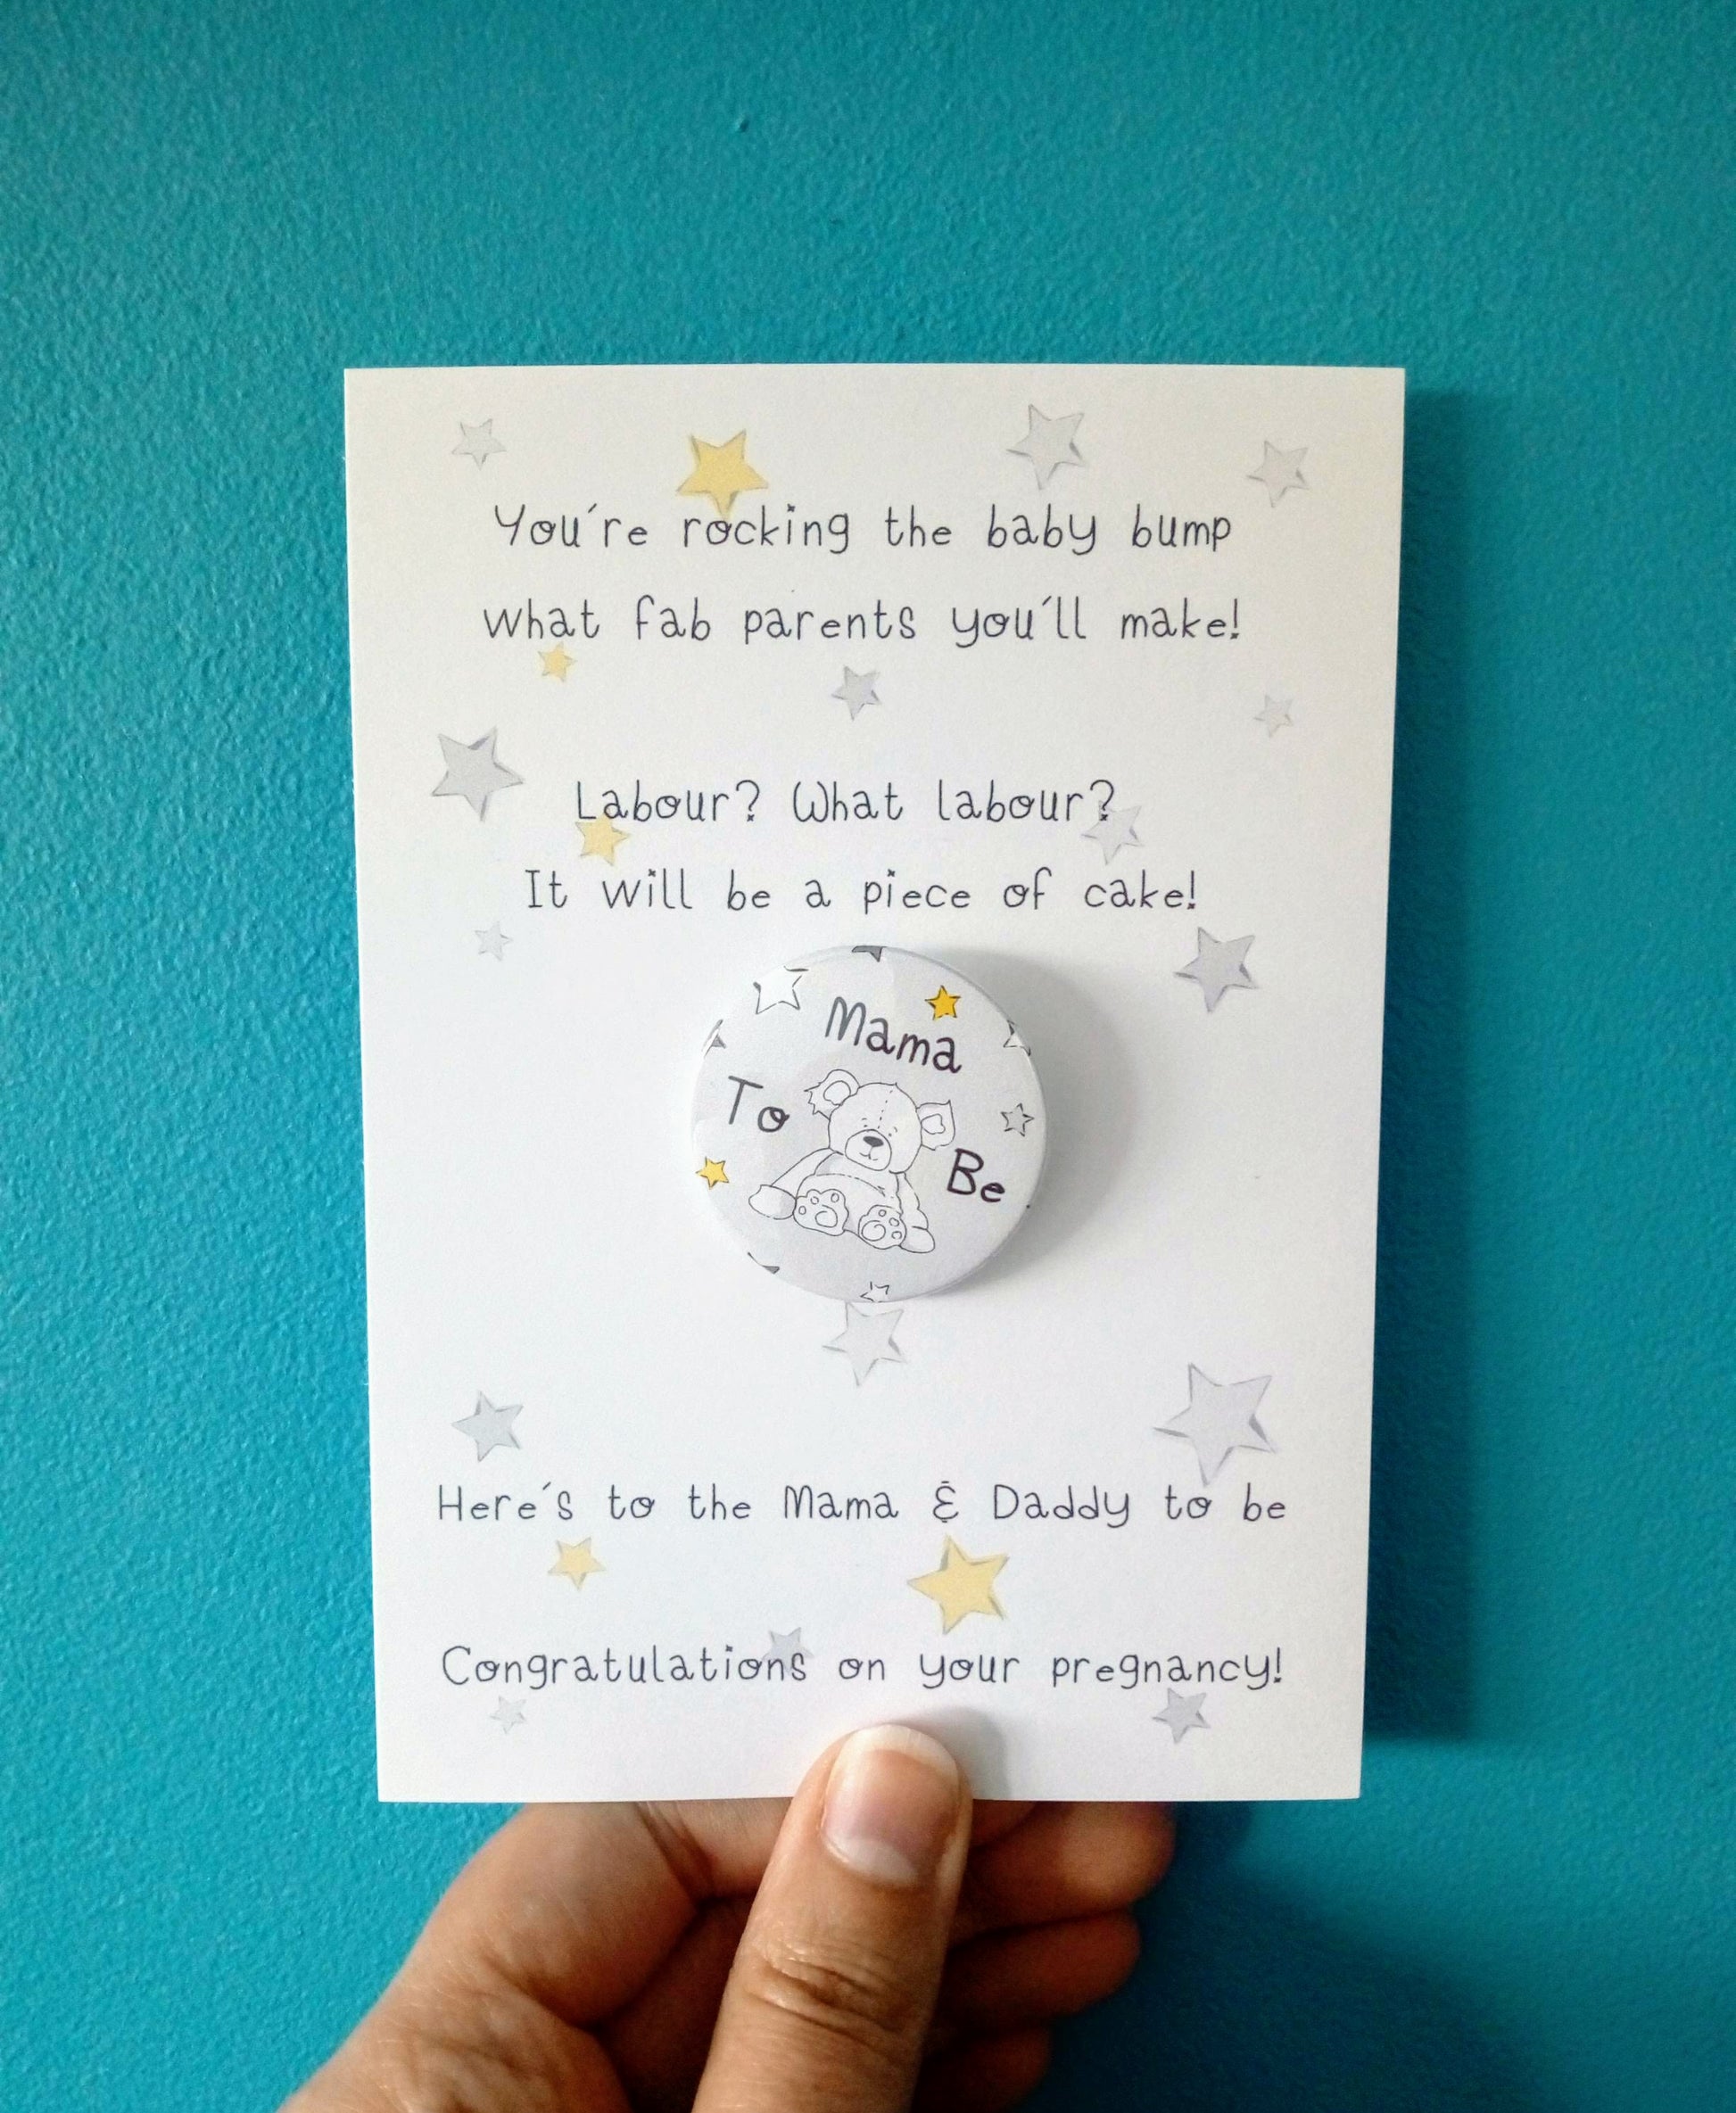 You're rocking the baby bump
what fab parents you'll make!
Labour? What labour?
It will be a piece of cake!
Mama
To
Be
Here's to the Mama & Daddy to be
Congratulations on your pregnancy!